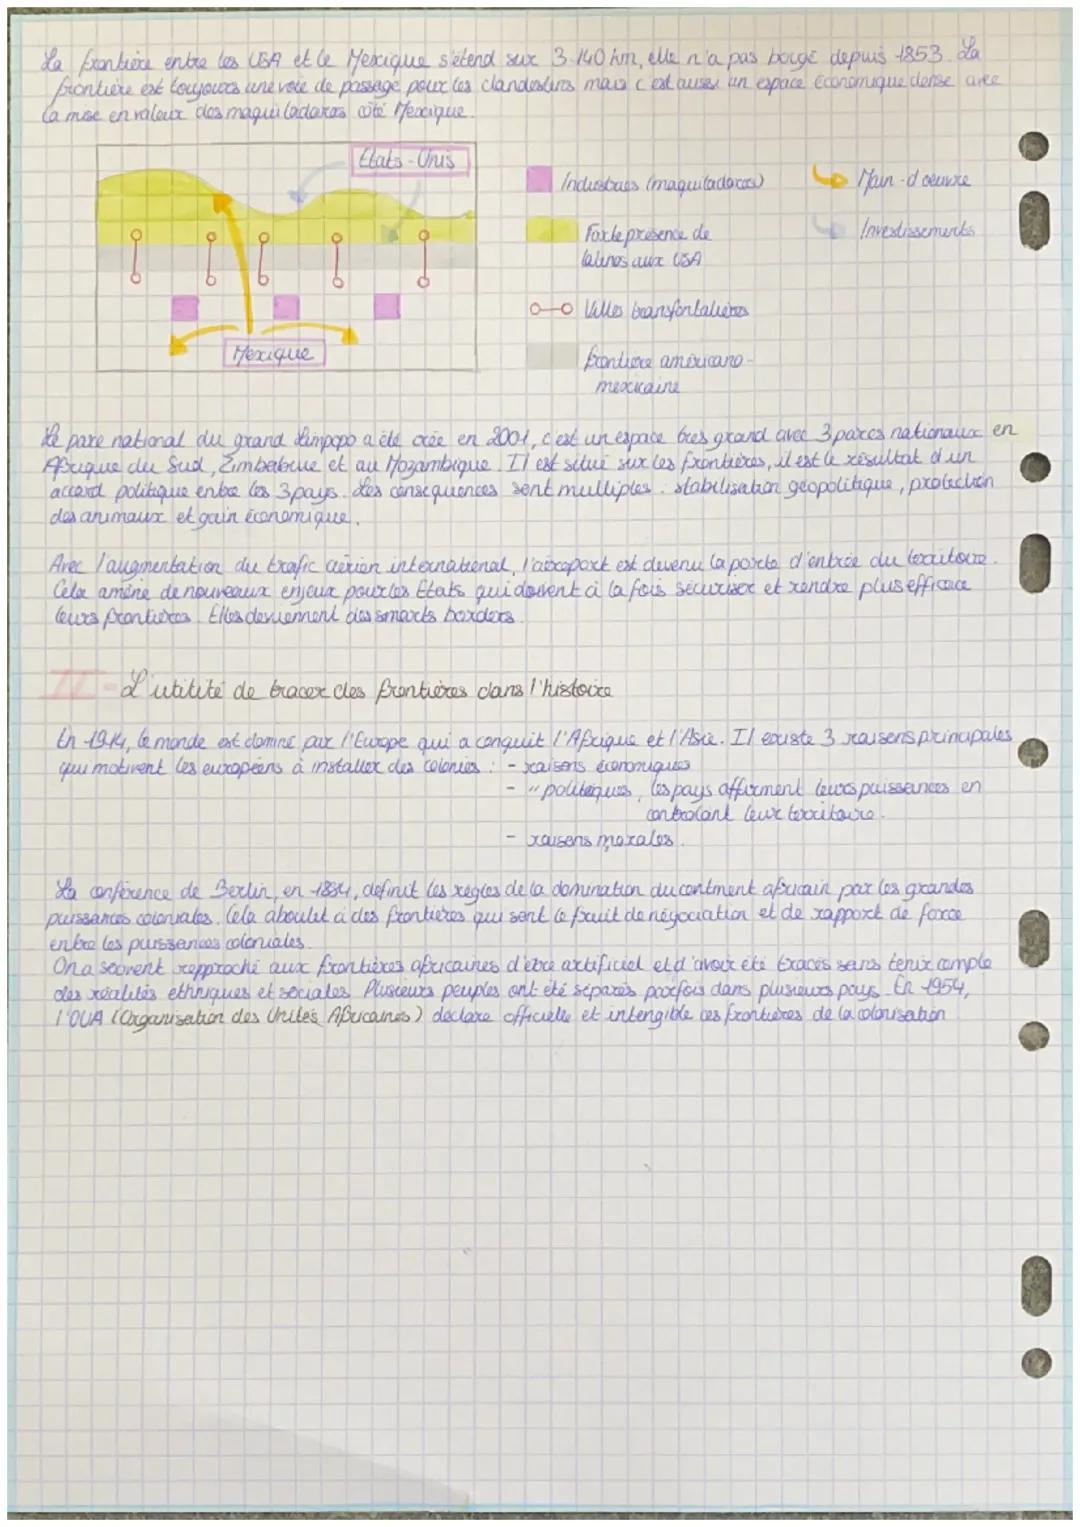 La frontière entre les USA et le Mexique s'étend sur 3 140 km, elle n'a pas bougé depuis 1853. La
frontière est toujours une voie de passage pour les clandestins mais c'est aussi un espace économique dense avec
la mise en valeur des maquiladoras côté Mexique.
Etats-Unis
Mexique
Industries (maquiladoras)
Main-d'œuvre
Forte présence de
latinos aux USA
Investissements
Villes transfontalières
frontière américano-
mexicaine
Le parc national du grand Limpopo a été crée en 2001, c'est un espace très grand avec 3 parcs nationaux en
Afrique du Sud, Zimbabwe et au Mozambique. Il est situé sur les frontières, il est le résultat d'un
accord politique entre les 3 pays. Les conséquences sont multiples : stabilisation géopolitique, protection
des animaux et gain économique.
Avec l'augmentation du trafic aérien international, l'aéroport est devenu la porte d'entrée du territoire.
Cela amène de nouveaux enjeux pour les Etats qui doivent à la fois sécuriser et rendre plus efficace
leurs frontières. Elles deviennent des smarts borders.
II - L'utilité de tracer des frontières dans l'histoire
En 1914, le monde est dominé par l'Europe qui a conquit l'Afrique et l'Asie. Il existe 3 raisons principales
qui motivent les européens à installer des colonies : - raisons économiques
- " politiques, les pays affirment leurs puissances en
contrôlant leur territoire.
- raisons morales.
La conférence de Berlin, en 1884, définit les règles de la domination du continent africain par les grandes
puissances coloniales. Cela aboutit à des frontières qui sont le fruit de négociation et de rapport de force
entre les puissances coloniales.
On a souvent repproché aux frontières africaines d'être artificiel et d'avoir été tracés sans tenir compte
des réalités ethniques et sociales. Plusieurs peuples ont été séparés parfois dans plusieurs pays. En 1954,
l'OUA (Organisation des Unités Africaines) déclare officielle et intengible ces frontières de la colonisation